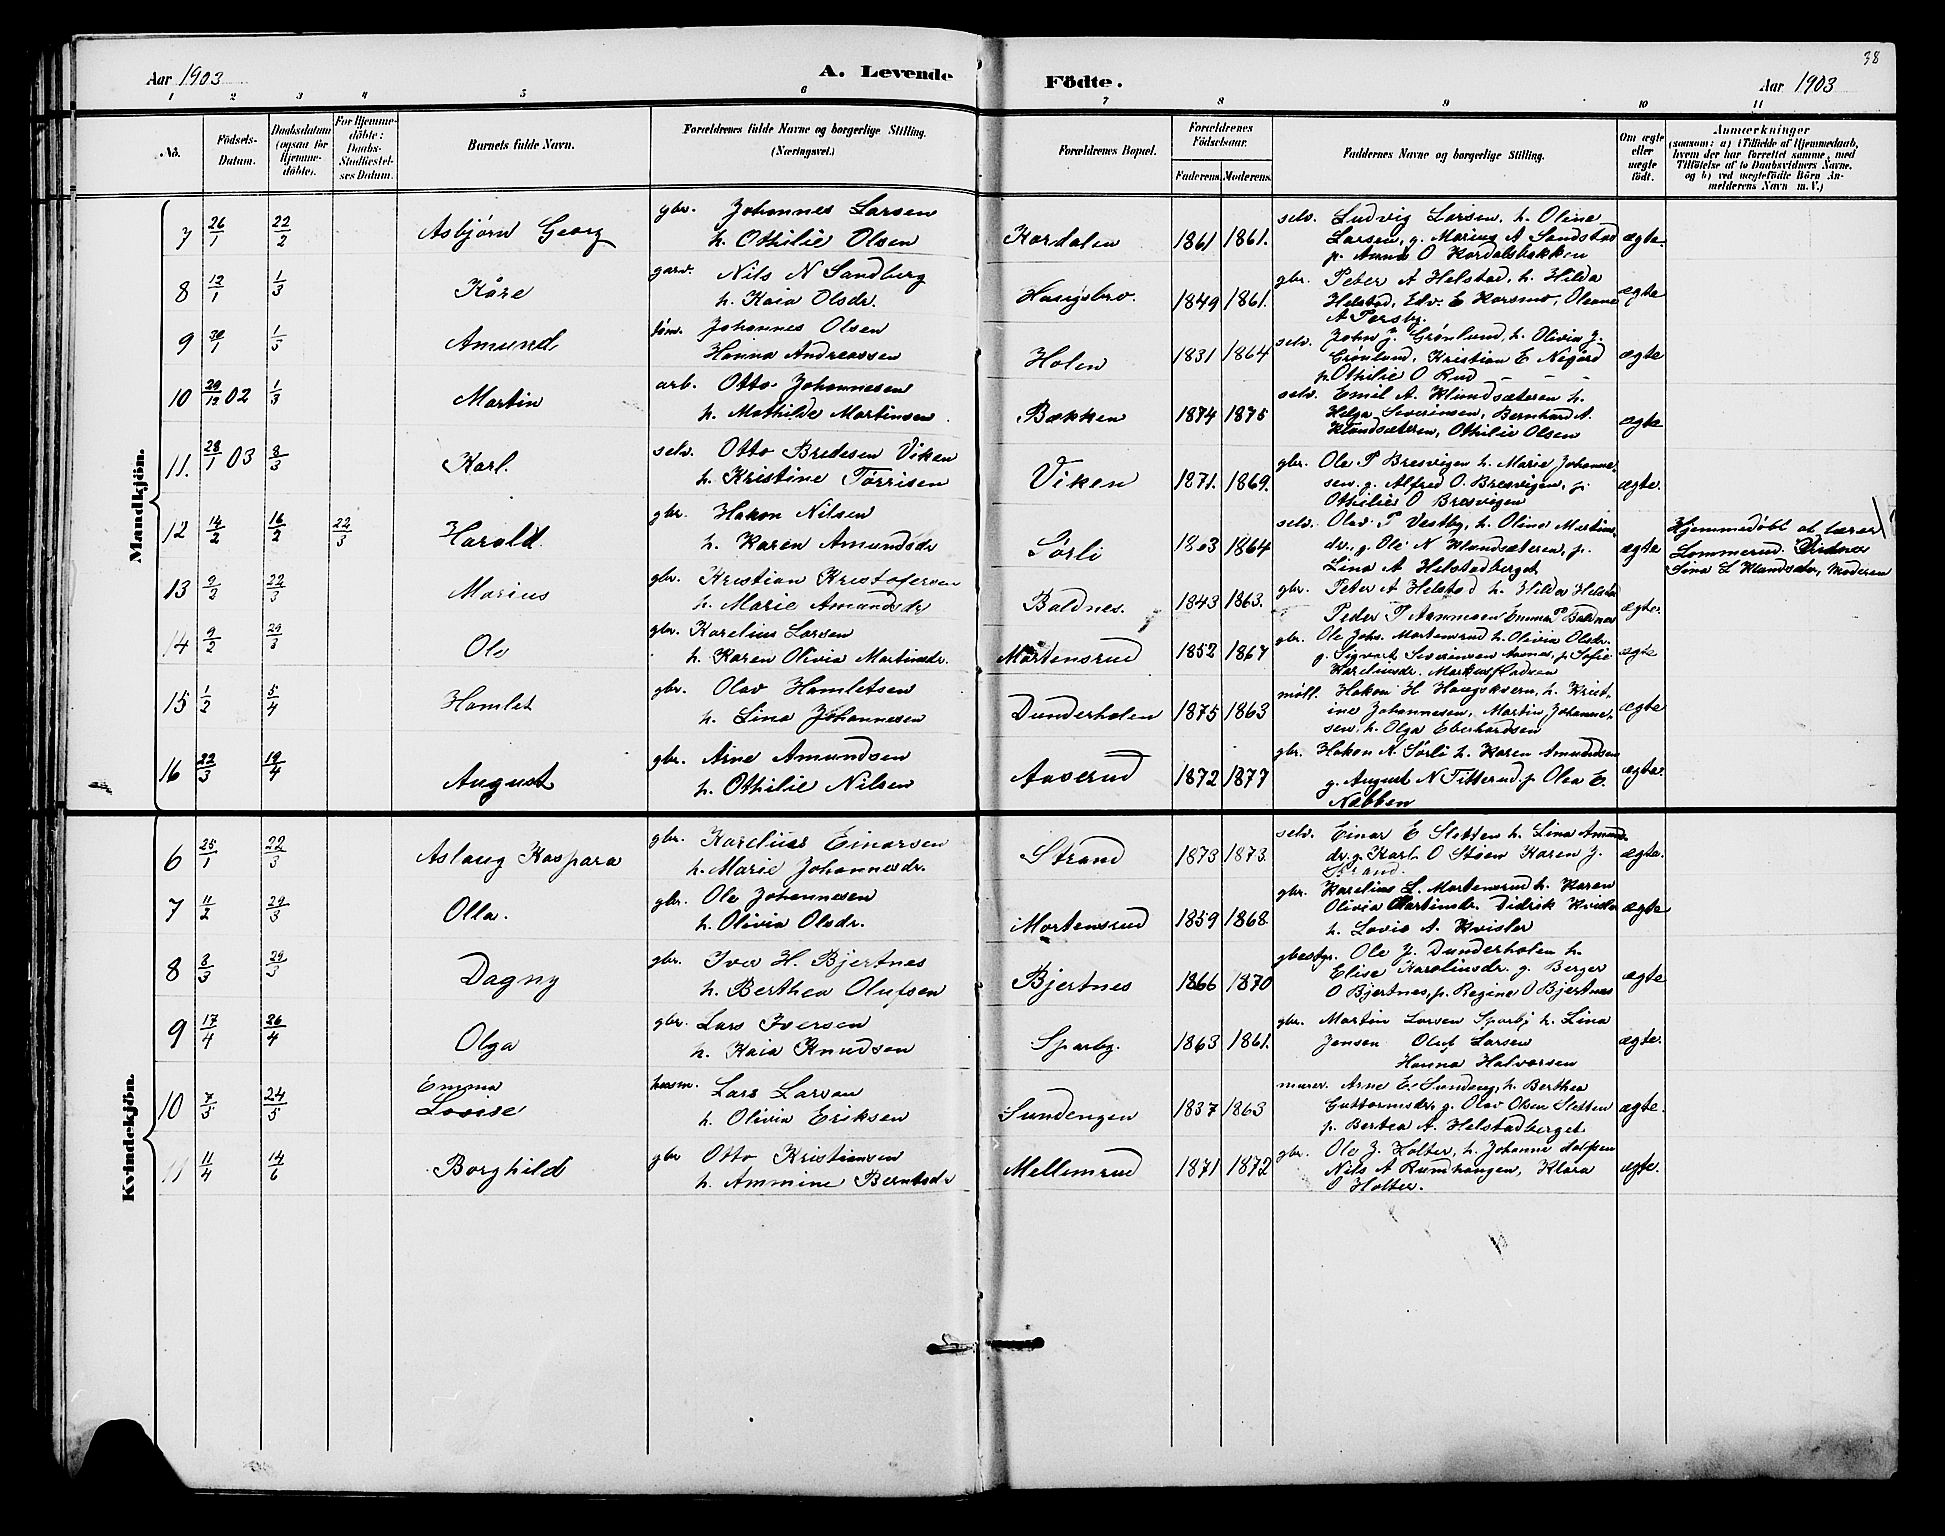 38
Aar 1903
A. Levende Födte.
Aar 1903
1 2 3 4 5 6 7 8 9 10 11
No.
Födsels-Datum.
Daabsdatum (ogsaa for Hjemmedöbte).
For Hjemmedöbte: Daabs-Stadfæstelses Datum.
Barnets fulde Navn.
Forældrenes fulde Navne og borgerlige Stilling. (Næringsvei.)
Forældrenes Bopæl.
Forældrenes Födselsaar.
Faderens. Moderens.
Faddernes Navne og borgerlige Stilling.
Om ægte eller uægte födt.
Anmærkninger
(saasom: a) i Tilfælde af Hjemmedaab, hvem der har forrettet samme, med Tilföielse af to Daabsvidners Navne, og b) ved uægtefödte Börn Anmelderens Navn m. V.)
Mandkjön.
7 26/1 22/2 Asbjørn Georg gbr. Johannes Larsen
h. Othilie Olsen Kordalen 1861 1861. selv. Ludvig Larsen, h. Oline
Larsen, g. Marius A Sandstad
p. Anna O Kordalsbakken ægte
8 12/1 1/3 Kåre garv. Nils N Sandberg
h. Kaia Olsdr. Haugsbro. 1849 1861. gbr. Peter A Helstad, h. Hilda
Helstad, Edv. E Korsmo, Oleane
A Porsby. ægte
9 30/1 1/3 Amund tøm. Johannes Olsen
Hanna Andreassen Holen 1831 1864 selv. John J. Grønlund, h. Olivia J.
Grønlund, Kristian E Negård
p. Othilie O Rud ægte
10 29/12 02 1/3 Martin arb. Otto Johannesen
h. Mathilde Martinsen Bækken 1874 1875 selv. Emil A. Klundsæteren h.
Helga Severinsen, Bernhard A.
Klundsæteren, Othilie Olsen ægte
11. 28/1 03 8/3 Karl. selv. Otto Bredesen Viken
h. Kristine Tørrisen Viken 1871. 1869. gbr. Ole P Bresvigen h. Marie Johanne-
sen g. Alfred O. Bresvigen, p.
Othilie O Bresvigen ægte.
12 14/2 16/2 22/3 Harald. gbr. Hakon Nilsen
h. Karen Amundsdr Sørli 1863 1864 selv. Olav P Vestby, h. Oline Martins-
dr., g. Ole N Klundsæteren, p.
Lina A Helstadberget ægte Hjemmedøbt af lærer
Lommerud. Vidner
Lina L Klundsæter, Moderen
13 9/2 22/3 Marius gbr. Kristian Kristofersen
h. Marie Amundsdr Baldnes. 1843 1863. gbr. Peter A Helstad h. Hilda Helstad
Peder P Aamnoen Emma P Baldnes ægte.
14 9/2 29/3 Ole gbr. Karelius Larsen
h. Karen Olivia Martinsdr. Mortensrud 1852 1867 gbr. Ole Johs. Mortensrud h. Olivia Olsdr.
g. Sigvart Severinsen Aasnes, p. Sofie
Kareliusdr. ægte
15 1/2 5/4 Hamlet gbr. Olav Hamletsen
h. Lina Johannesen Dunderholen 1875 1863 møll. Hakon H Haugskvern, h. Krist-
ine Johannesen, Martin Johanne-
sen, h. Olga Eberhardsen ægte
16 22/3 19/4 August gbr. Arne Amundsen
h. Othilie Nilsen Aaserud 1872 1877 gbr. Hakon N. Sørli h. Karen Amundsen
g. August N Titterud, p. Olea E.
Nabben ægte.
Kvindekjön.
6 25/1 22/3 Aslaug Kaspara gbr. Karelius Einarsen
h. Marie Johannesdr. Strand 1873 1873. selv. Einar E Sletten h. Lina Amund-
dr. g. Karl O Støen Karen J.
Strand. ægte.
7 11/2 29/3 Olla. gbr. Ole Johannesen
h. Olivia Olsdr. Mortensrud 1859 1868. gbr. Karelius L. Mortensrud h. Karen
Olivia Martinsdr. Didrik Kvisler
h. Lovise A. Kvisler ægte
8 8/3 29/3 Dagny gbr. Iver H. Bjertnes
h. Berthea Olufsen Bjertnes 1866 1870 gbestyr. Ole J. Dunderholen h.
Elise Karolinsdr. g. Berger
O Bjertnes, p. Regine O Bjertnes ægte
9 17/4 26/4 Olga gbr. Lars Iversen
h. Kaia Knudsen Sparby. 1863 1861. gbr. Martin Larsen Sparby h. Lina
Jensen Oluf Larsen
Hanna Halvorsen ægte.
10 7/5 24/5 Emma
Lovise husm. Lars Larsen
h. Olivia Eriksen Sundengen 1837 1863 murer. Arne E. Sundeng, h. Berthea
Guttormsdr, g. Olav Olsen Sletten
p. Bertea A. Helstadberget ægte.
11 11/4 14/6 Borghild gbr Otto Kristiansen
h. Ammine Berntsdr Mellemrud 1871 1872 gbr. Ole J. Holter, h. Johanne
Nils A Rundhaugen, Klara
O Holter. ægte.